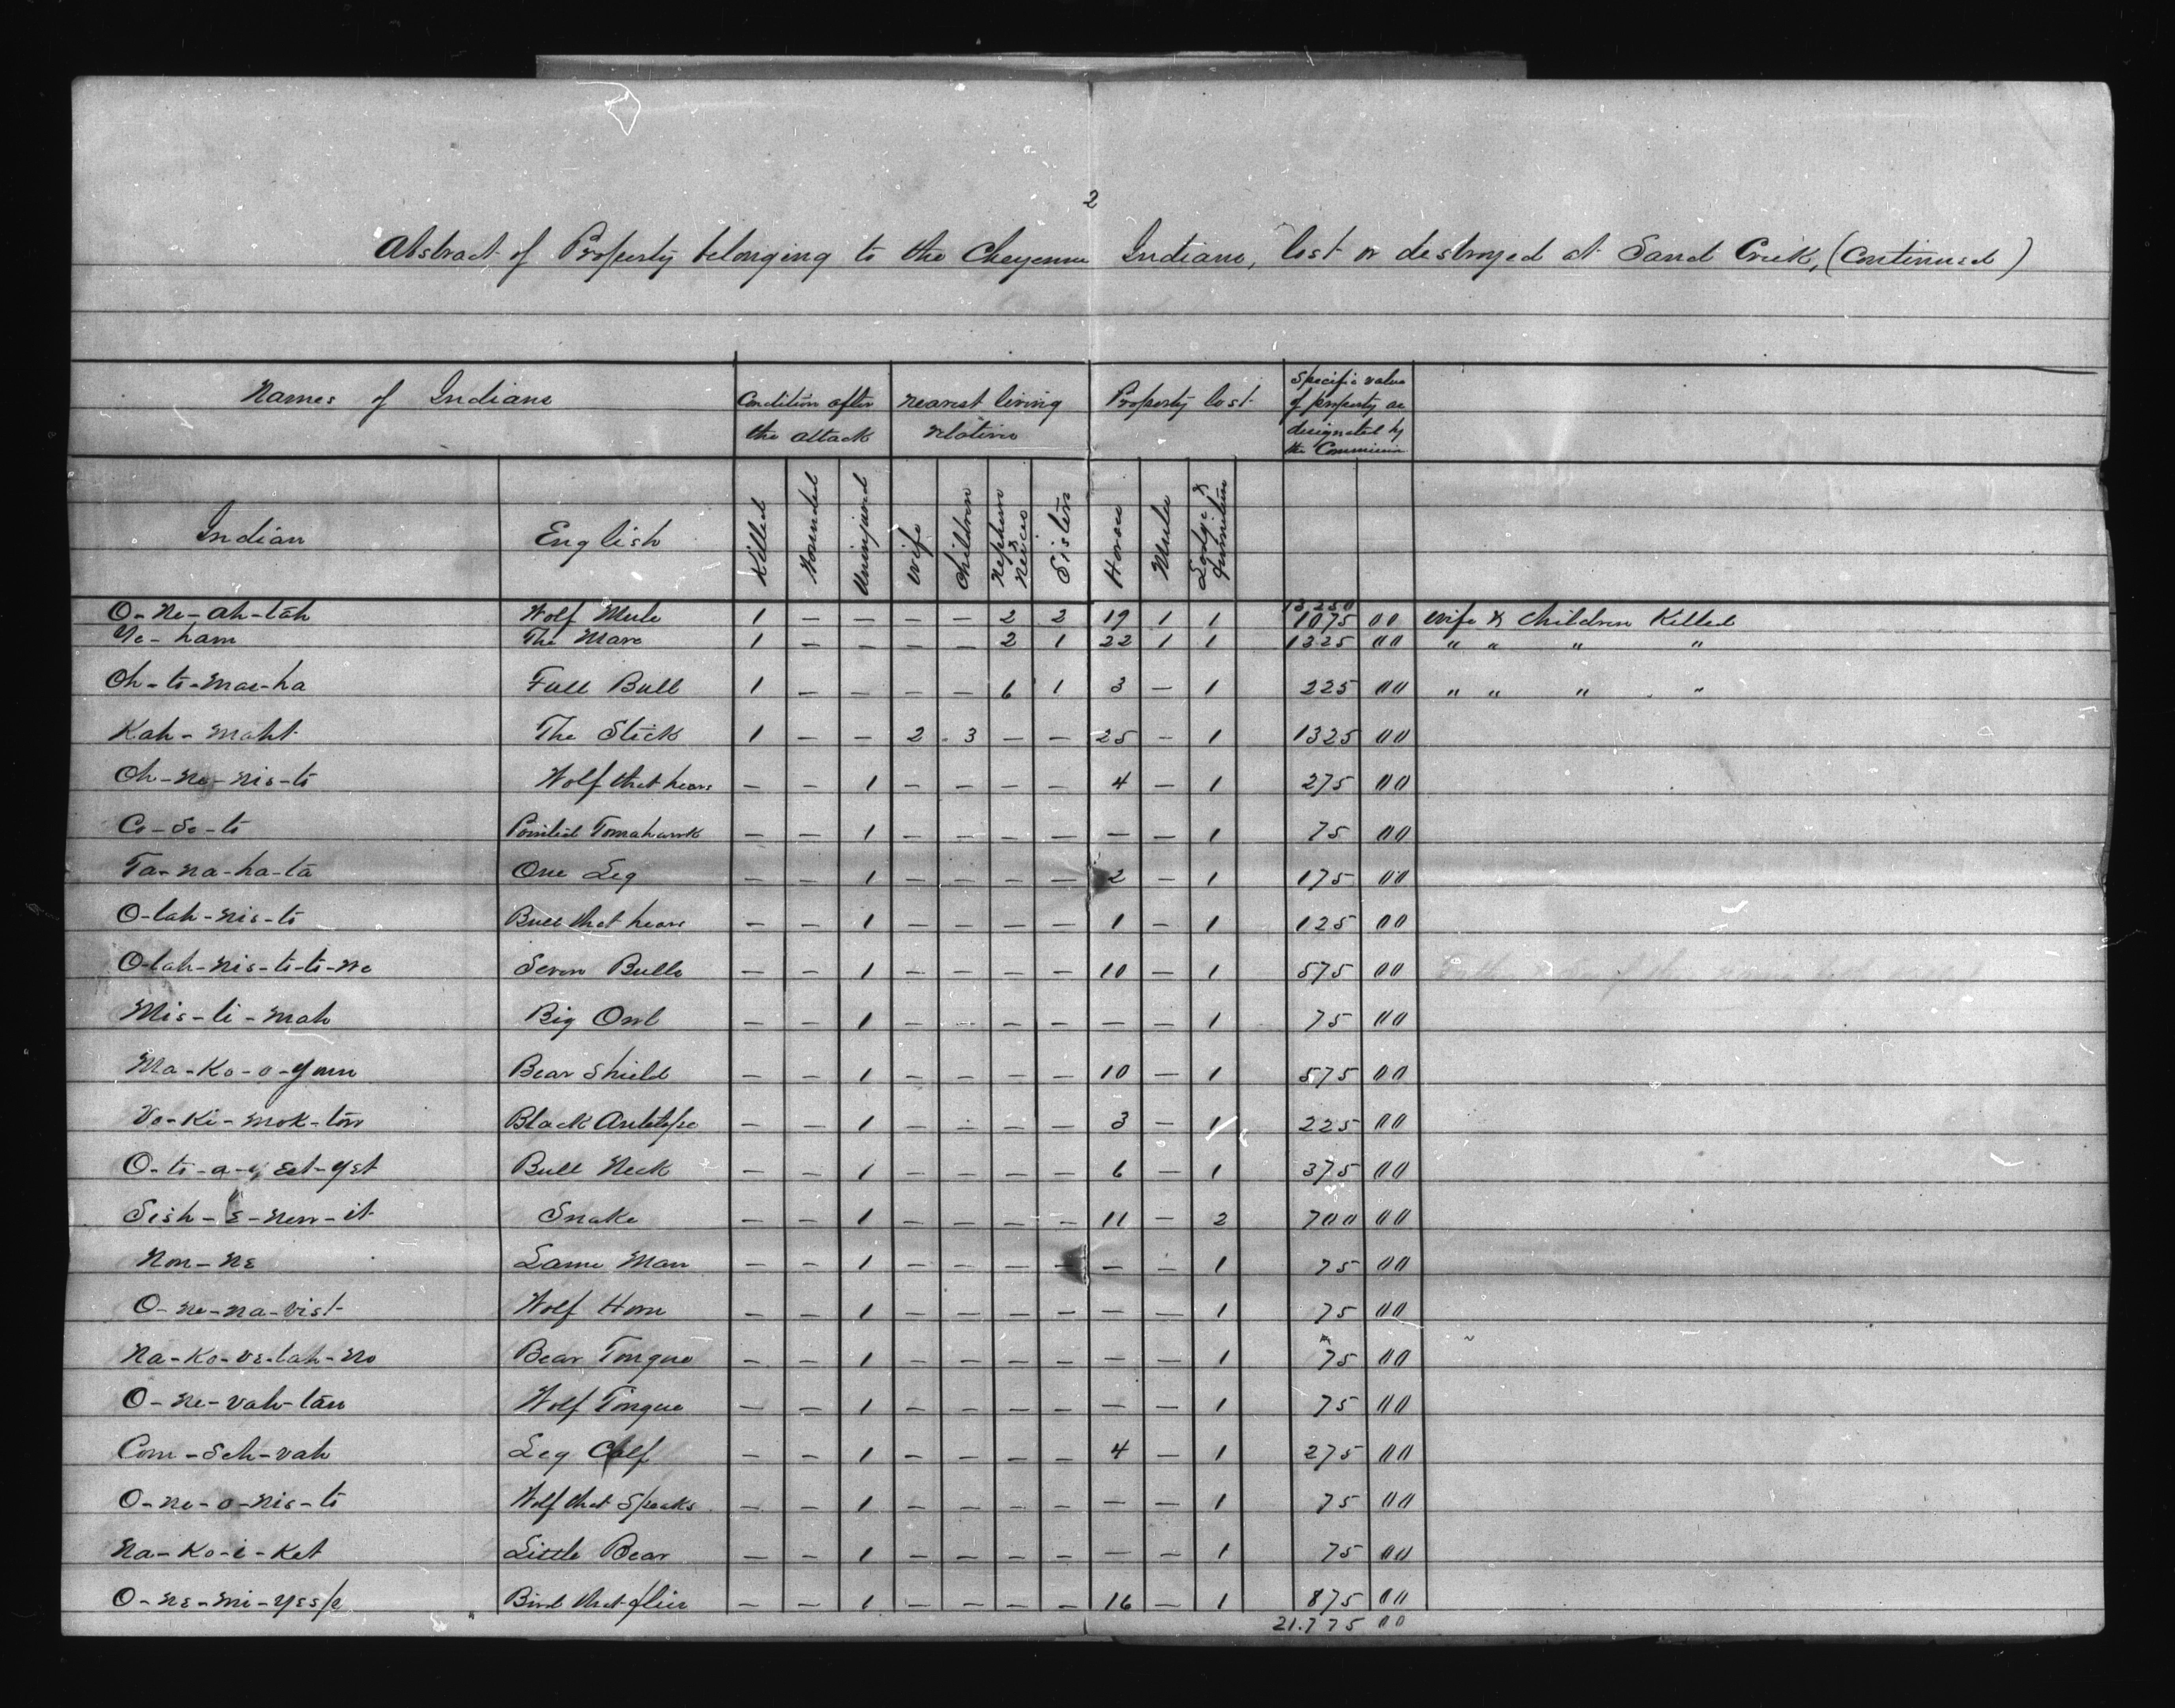 2
Abstract of Property belonging to the Cheyenne Indians, lost or destroyed at Sand Creek, (Continued)
Names of Indians | Condition after the attack | nearest living relative | Property lost | Specific value of property as designated by the Commission
Indian | English | Killed | Wounded | Uninjured | Wife | Children | Nephews & Neices | Sisters | Horses | Mules | Lodge & furniture
13.250
O-ne-ah-tah | Wolf Mule | 1 | – | – | – | – | 2 | 2 | 19 | 1 | 1 | 1075 | 00 | Wife & Children Killed
Ve-ham | The Mare | 1 | – | – | – | – | 2 | 1 | 22 | 1 | 1 | 1325 | 00 | " " " "
Oh-to-mae-ha | Full Bull | 1 | – | – | – | – | 6 | 1 | 3 | – | 1 | 225 | 00 | " " " "
Kah-maht | The Stick | 1 | – | – | 2 | 3 | – | – | 25 | – | 1 | 1325 | 00
Oh-ne-nis-to | Wolf that hears | – | – | 1 | – | – | – | – | 4 | – | 1 | 275 | 00
Co-so-to | Pointed Tomahawk | – | – | 1 | – | – | – | – | – | – | 1 | 75 | 00
Ta-na-ha-ta | One Leg | – | – | 1 | – | – | – | – | 2 | – | 1 | 175 | 00
O-tah-nis-to | Bull that hears | – | – | 1 | – | – | – | – | 1 | – | 1 | 125 | 00
O-tah-nis-to-to-ne | Seven Bulls | – | – | 1 | – | – | – | – | 10 | – | 1 | 575 | 00
Mis-ti-mah | Big Owl | – | – | 1 | – | – | – | – | – | – | 1 | 75 | 00
Ma-Ko-o-youn | Bear Shield | – | – | 1 | – | – | – | – | 10 | – | 1 | 575 | 00
Vo-Ki-mok-tow | Black Antelope | – | – | 1 | – | – | – | – | 3 | – | 1 | 225 | 00
Bull Neck | – | – | 1 | – | – | – | – | 6 | – | 1 | 375 | 00
Sish-e-new-it | Snake | – | – | 1 | – | – | – | – | 11 | – | 2 | 700 | 00
Non-ne | Lame Man | – | – | 1 | – | – | – | – | – | – | 1 | 75 | 00
O-ne-na-vist | Wolf Horn | – | – | 1 | – | – | – | – | – | – | 1 | 75 | 00
Na-Ko-ve-tah-no | Bear Tongue | – | – | 1 | – | – | – | – | – | – | 1 | 75 | 00
O-ne-vah-tan | Wolf Tongue | – | – | 1 | – | – | – | – | – | – | 1 | 75 | 00
Com-seh-vah | Leg Calf | – | – | 1 | – | – | – | – | 4 | – | 1 | 275 | 00
O-ne-o-nis-to | Wolf that Speaks | – | – | 1 | – | – | – | – | – | – | 1 | 75 | 00
Na-Ko-i-Ket | Little Bear | – | – | 1 | – | – | – | – | – | – | 1 | 75 | 00
O-ne-mi-yesse | Bird that flies | – | – | 1 | – | – | – | – | 16 | – | 1 | 875 | 00
21.775 00